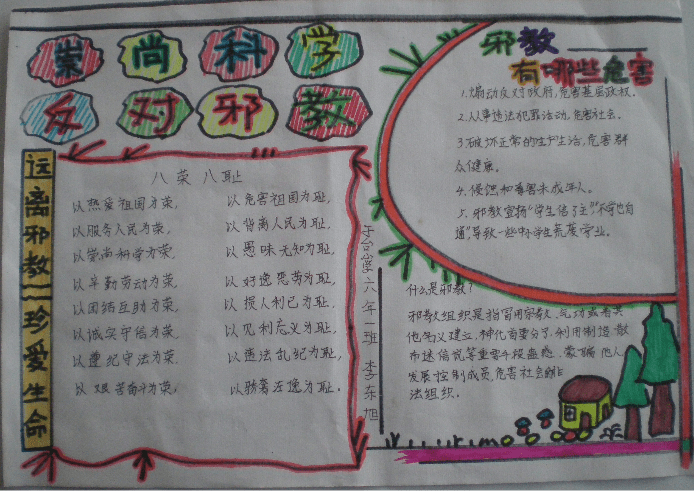 崇尚科学
反对邪教
远离邪教——珍爱生命
八荣八耻
以热爱祖国为荣,以危害祖国为耻,
以服务人民为荣,以背离人民为耻,
以崇尚科学为荣,以愚昧无知为耻,
以辛勤劳动为荣,以好逸恶劳为耻,
以团结互助为荣,以损人利己为耻,
以诚实守信为荣,以见利忘义为耻,
以遵纪守法为荣,以违法乱纪为耻,
以艰苦奋斗为荣,以骄奢淫逸为耻.
台堂六年一班 李东旭
邪教
有哪些危害
1.煽动反对政府,危害基层政权.
2.从事违法犯罪活动,危害社会.
3.破坏正常的生产生活,危害群
众健康.
4.侵蚀和毒害未成年人。
5.邪教宣扬"学生信了主","不学也自
通",导致一些中小学生荒废学业。
什么是邪教?
邪教组织是指冒用宗教、气功或者其
他名义建立,神化首要分子,利用制造散
布迷信邪说等手段蛊惑、蒙骗他人,
发展控制成员,危害社会的非
法组织.